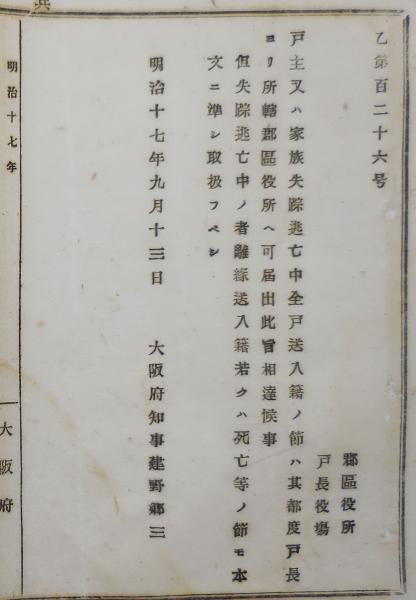 乙第百二十六号
郡區役所
戸長役場
戸主又ハ家族失踪逃亡中全戸送入籍ノ節ハ其都度戸長
ヨリ所轄郡區役所ヘ可届出此旨相達候事
但失踪逃亡中ノ者離縁送入籍若クハ死亡等ノ節モ本
文ニ準シ取扱フベシ
明治十七年九月十三日
大阪府知事建野郷三
明治十七年
大阪府